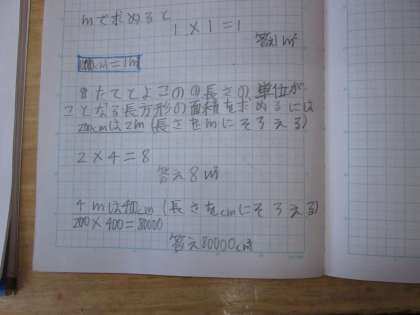 mで求めると
1×1=1
答え1m²
100cm=1m
たてとよこの長さの単位が
ことなる長方形の面積を求めるには
200cmは2m(長さをmにそろえる)
2×4=8
答え8m²
4mは400cm(長さをcmにそろえる)
200×400=80000
答え80000cm²